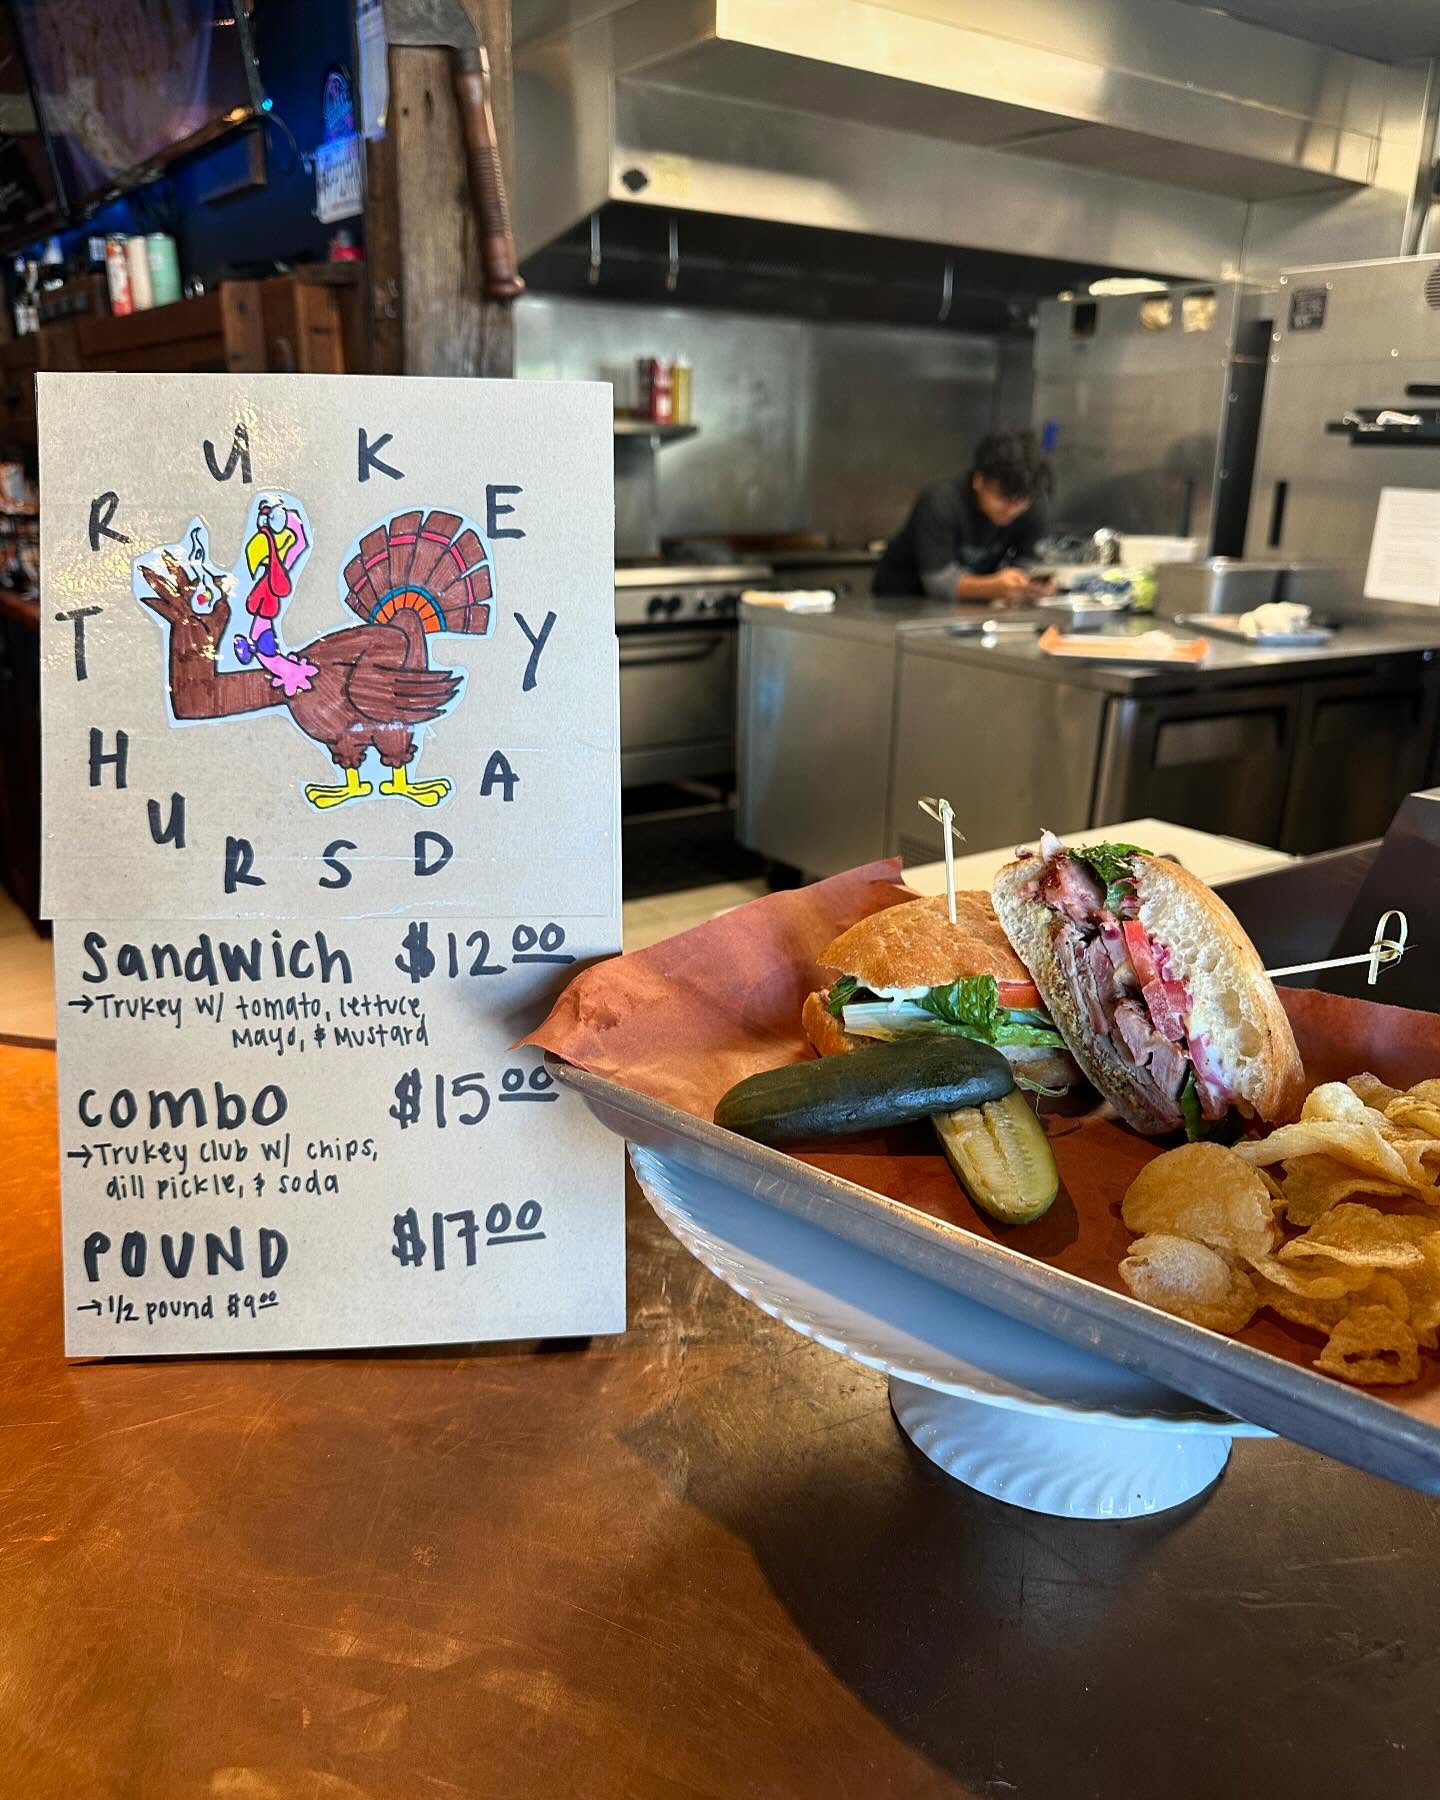 TRUKEY
THURSDAY
Sandwich $12.00
→Trukey w/ tomato, lettuce,
Mayo, & Mustard
Combo $15.00
→Trukey club w/ chips,
dill pickle, & soda
POUND $17.00
→1/2 pound $9.00